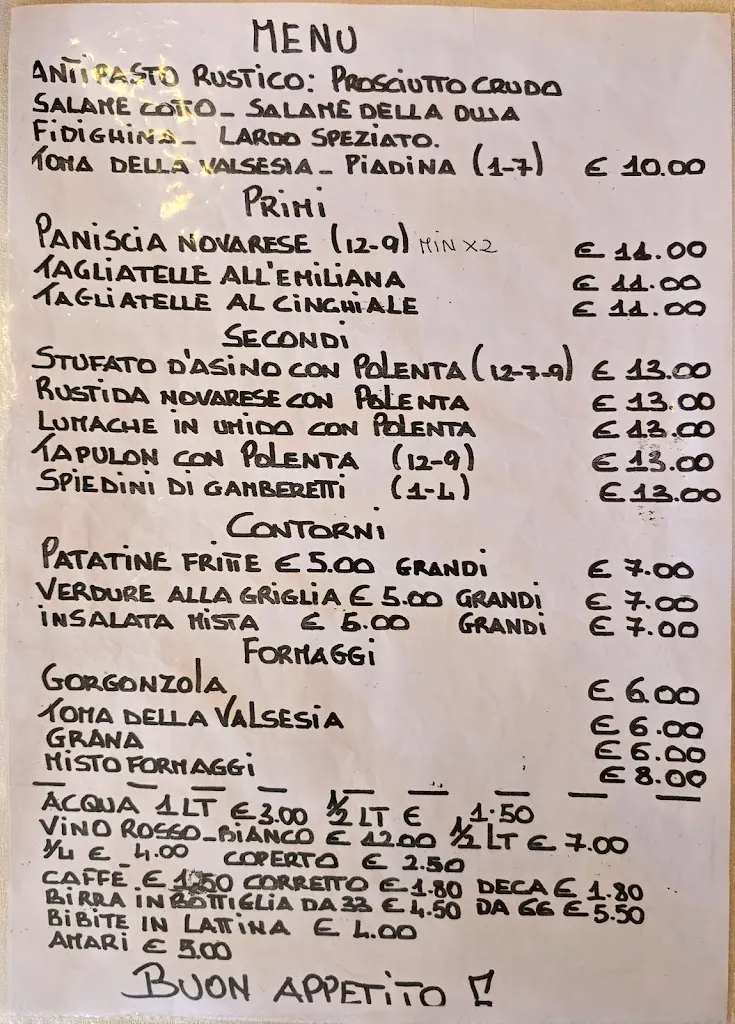 MENU
ANTIPASTO RUSTICO: PROSCIUTTO CRUDO
SALAME COTTO - SALAME DELLA DUJA
FIDIGHINA - LARDO SPEZIATO.
TOMA DELLA VALSESIA - PIADINA (1-7) € 10.00
PRIMI
PANISCIA NOVARESE (12-9) MIN X2 € 11.00
TAGLIATELLE ALL'EMILIANA € 11.00
TAGLIATELLE AL CINGHIALE € 11.00
SECONDI
STUFATO D'ASINO CON POLENTA (12-7-9) € 13.00
RUSTIDA NOVARESE CON POLENTA € 13.00
LUMACHE IN UMIDO CON POLENTA € 13.00
TAPULON CON POLENTA (12-9) € 13.00
SPIEDINI DI GAMBERETTI (1-4) € 13.00
CONTORNI
PATATINE FRITTE € 5.00 GRANDI € 7.00
VERDURE ALLA GRIGLIA € 5.00 GRANDI € 7.00
INSALATA MISTA € 5.00 GRANDI € 7.00
FORMAGGI
GORGONZOLA € 6.00
TOMA DELLA VALSESIA € 6.00
GRANA € 6.00
MISTO FORMAGGI € 8.00
ACQUA 1 LT € 3.00 ½ LT € 1.50
VINO ROSSO-BIANCO € 12.00 ½ LT € 7.00
¼ € 4.00 COPERTO € 2.50
CAFFÈ € 1.50 CORRETTO € 1.80 DECA € 1.80
BIRRA IN BOTTIGLIA DA 33 € 4.50 DA 66 € 5.50
BIBITE IN LATTINA € 4.00
AMARI € 5.00
BUON APPETITO !